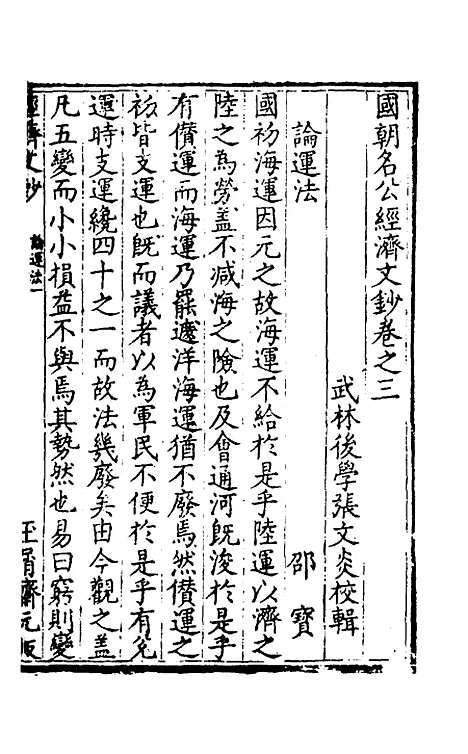 國朝名公經濟文鈔卷之三
武林後學張文炎校輯
論運法 邵寶
國初海運因元之故海運不給於是乎陸運以濟之
陸之為勞盖不减海之險也及會通河既浚於是乎
有儹運而海運乃罷遮洋海運猶不廢焉然儹運之
初皆支運也既而議者以為軍民不便於是乎有兌
運時支運纔四十之一而故法幾廢矣由今觀之盖
凡五變而小小損益不與焉其勢然也易曰窮則變
經濟文鈔 論運法一